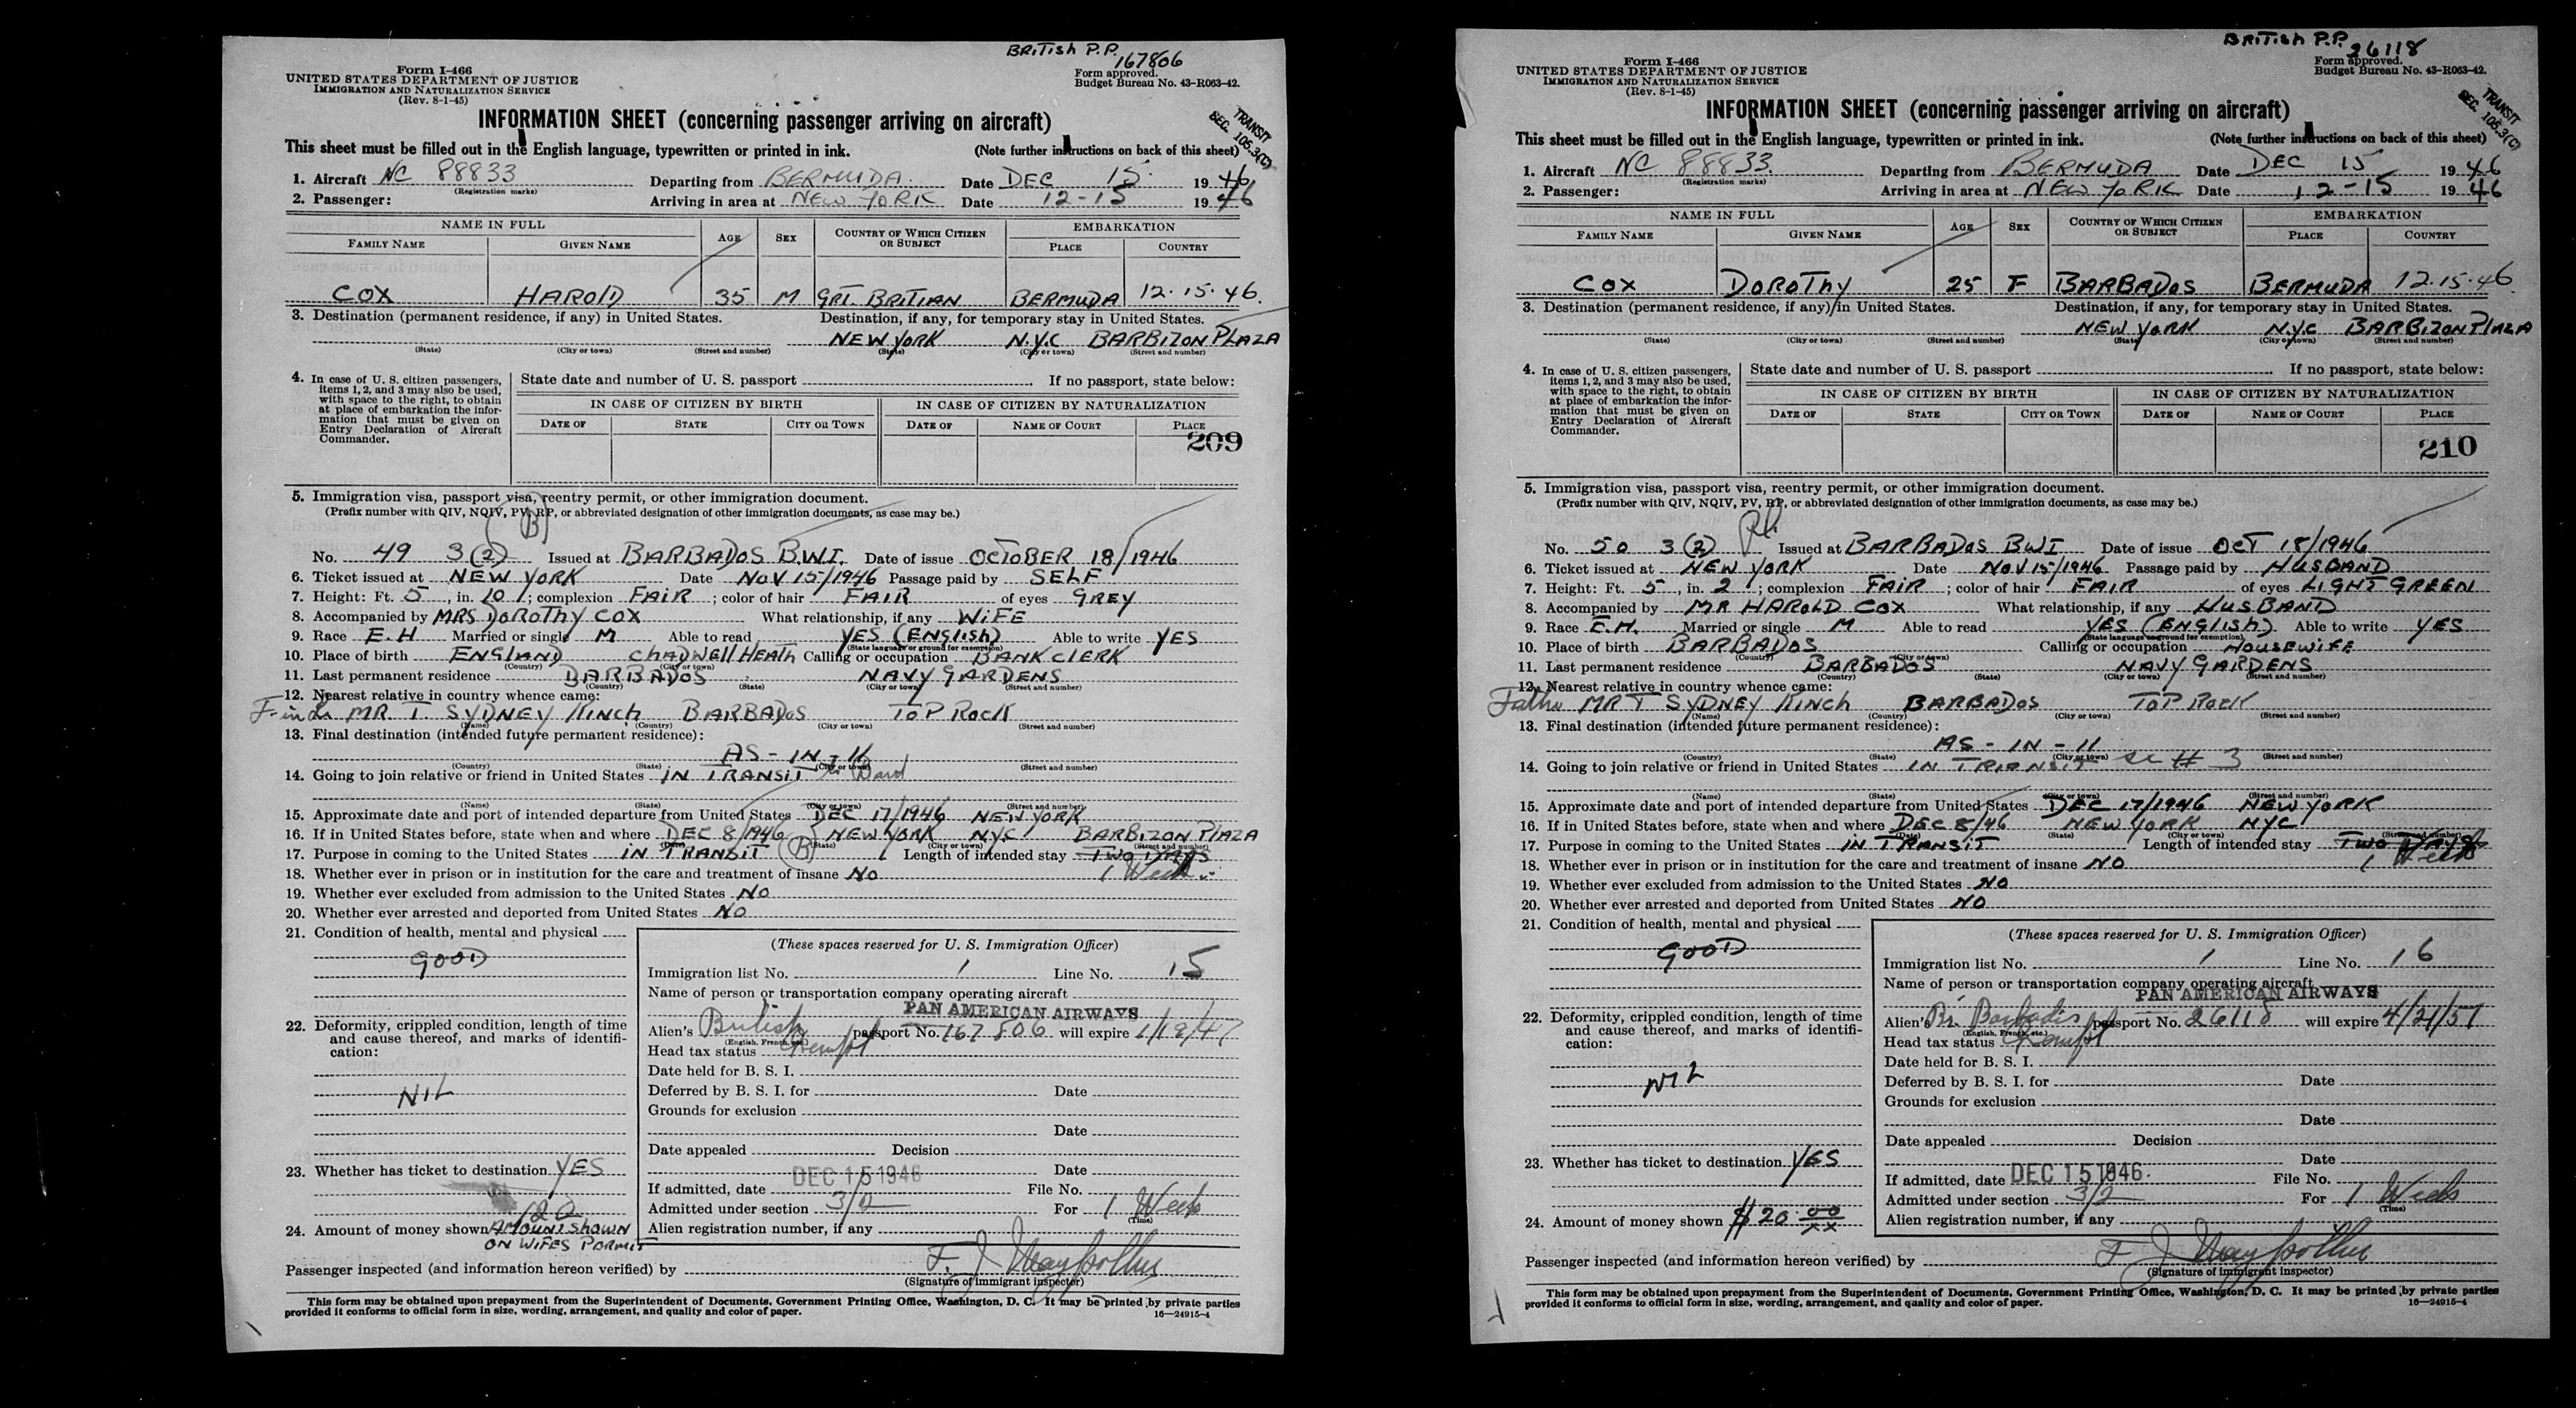 BRITISH P.P.
167806
Form I-466
UNITED STATES DEPARTMENT OF JUSTICE
IMMIGRATION AND NATURALIZATION SERVICE
(Rev. 8-1-45)
Form approved.
Budget Bureau No. 43-R063-42.
INFORMATION SHEET (concerning passenger arriving on aircraft)
TRANSIT
SEC. 105.3(C)
This sheet must be filled out in the English language, typewritten or printed in ink. (Note further instructions on back of this sheet)
1. Aircraft NC 88833 Departing from BERMUDA. Date DEC 15. 1946
(Registration marks)
2. Passenger: Arriving in area at NEW YORK Date 12-15 1946
NAME IN FULL AGE SEX COUNTRY OF WHICH CITIZEN OR SUBJECT EMBARKATION
FAMILY NAME GIVEN NAME PLACE COUNTRY
COX HAROLD 35 M GRT. BRITIAN BERMUDA 12.15.46.
3. Destination (permanent residence, if any) in United States. Destination, if any, for temporary stay in United States.
NEW YORK N.Y.C BARBIZON PLAZA
(State) (City or town) (Street and number) (State) (City or town) (Street and number)
4. In case of U. S. citizen passengers, items 1, 2, and 3 may also be used, with space to the right, to obtain at place of embarkation the information that must be given on Entry Declaration of Aircraft Commander.
State date and number of U. S. passport If no passport, state below:
IN CASE OF CITIZEN BY BIRTH IN CASE OF CITIZEN BY NATURALIZATION
DATE OF STATE CITY OR TOWN DATE OF NAME OF COURT PLACE
209
5. Immigration visa, passport visa, reentry permit, or other immigration document.
(Prefix number with QIV, NQIV, PV, RP, or abbreviated designation of other immigration documents, as case may be.)
(B)
No. 49 3(2) Issued at BARBADOS B.W.I. Date of issue OCTOBER 18/1946
6. Ticket issued at NEW YORK Date NOV 15/1946 Passage paid by SELF
7. Height: Ft. 5, in. 10; complexion FAIR; color of hair FAIR of eyes GREY
8. Accompanied by MRS DOROTHY COX What relationship, if any WIFE
9. Race E.H Married or single M Able to read YES (ENGLISH) Able to write YES
(State language or ground for exemption)
10. Place of birth ENGLAND CHADWELL HEATH Calling or occupation BANK CLERK
(Country) (City or town)
11. Last permanent residence BARBADOS NAVY GARDENS
(Country) (State) (City or town) (Street and number)
12. Nearest relative in country whence came:
F-in-L MR T. SYDNEY KINCH BARBADOS TOP ROCK
(Name) (Country) (City or town) (Street and number)
13. Final destination (intended future permanent residence):
AS-IN-11
(Country) (State) (City or town) (Street and number)
14. Going to join relative or friend in United States IN TRANSIT
(Name) (State) (City or town) (Street and number)
15. Approximate date and port of intended departure from United States DEC 17/1946 NEW YORK
16. If in United States before, state when and where DEC 8/1946 NEW YORK NYC BARBIZON PLAZA
(Date) (State) (City or town) (Street and number)
17. Purpose in coming to the United States IN TRANSIT (B) Length of intended stay TWO DAYS
1 Week
18. Whether ever in prison or in institution for the care and treatment of insane NO
19. Whether ever excluded from admission to the United States NO
20. Whether ever arrested and deported from United States NO
21. Condition of health, mental and physical
GOOD
22. Deformity, crippled condition, length of time and cause thereof, and marks of identification:
NIL
23. Whether has ticket to destination YES
24. Amount of money shown AMOUNT SHOWN
ON WIFES PERMIT
(These spaces reserved for U. S. Immigration Officer)
Immigration list No. 1 Line No. 15
Name of person or transportation company operating aircraft
PAN AMERICAN AIRWAYS
Alien's British passport No. 167806 will expire 1/18/47
(English, French, etc.)
Head tax status Exempt
Date held for B. S. I.
Deferred by B. S. I. for Date
Grounds for exclusion
Date
Date appealed Decision
Date
If admitted, date DEC 15 1946 File No.
Admitted under section 3/2 For 1 Week
(Time)
Alien registration number, if any
Passenger inspected (and information hereon verified) by
(Signature of immigrant inspector)
This form may be obtained upon prepayment from the Superintendent of Documents, Government Printing Office, Washington, D. C. It may be printed by private parties
provided it conforms to official form in size, wording, arrangement, and quality and color of paper. 16—24915-4
BRITISH P.P.
26118
Form I-466
UNITED STATES DEPARTMENT OF JUSTICE
IMMIGRATION AND NATURALIZATION SERVICE
(Rev. 8-1-45)
Form approved.
Budget Bureau No. 43-R063-42.
INFORMATION SHEET (concerning passenger arriving on aircraft)
TRANSIT
SEC. 105.3(C)
This sheet must be filled out in the English language, typewritten or printed in ink. (Note further instructions on back of this sheet)
1. Aircraft NC 88833. Departing from BERMUDA Date DEC 15 1946
(Registration marks)
2. Passenger: Arriving in area at NEW YORK Date 12-15 1946
NAME IN FULL AGE SEX COUNTRY OF WHICH CITIZEN OR SUBJECT EMBARKATION
FAMILY NAME GIVEN NAME PLACE COUNTRY
COX DOROTHY 25 F BARBADOS BERMUDA 12.15.46.
3. Destination (permanent residence, if any) in United States. Destination, if any, for temporary stay in United States.
NEW YORK N.Y.C BARBIZON PLAZA
(State) (City or town) (Street and number) (State) (City or town) (Street and number)
4. In case of U. S. citizen passengers, items 1, 2, and 3 may also be used, with space to the right, to obtain at place of embarkation the information that must be given on Entry Declaration of Aircraft Commander.
State date and number of U. S. passport If no passport, state below:
IN CASE OF CITIZEN BY BIRTH IN CASE OF CITIZEN BY NATURALIZATION
DATE OF STATE CITY OR TOWN DATE OF NAME OF COURT PLACE
210
5. Immigration visa, passport visa, reentry permit, or other immigration document.
(Prefix number with QIV, NQIV, PV, RP, or abbreviated designation of other immigration documents, as case may be.)
No. 50 3(2) Issued at BARBADOS BWI Date of issue OCT 18/1946
6. Ticket issued at NEW YORK Date NOV 15/1946 Passage paid by HUSBAND
7. Height: Ft. 5, in. 2; complexion FAIR; color of hair FAIR of eyes LIGHT GREEN
8. Accompanied by MR HAROLD COX What relationship, if any HUSBAND
9. Race E.H. Married or single M Able to read YES (ENGLISH) Able to write YES
(State language or ground for exemption)
10. Place of birth BARBADOS Calling or occupation HOUSEWIFE
(Country) (City or town)
11. Last permanent residence BARBADOS NAVY GARDENS
(Country) (State) (City or town) (Street and number)
12. Nearest relative in country whence came:
Father MR T SYDNEY KINCH BARBADOS TOP ROCK
(Name) (Country) (City or town) (Street and number)
13. Final destination (intended future permanent residence):
AS-IN-11
(Country) (State) (City or town) (Street and number)
14. Going to join relative or friend in United States IN TRANSIT # 3
(Name) (State) (City or town) (Street and number)
15. Approximate date and port of intended departure from United States DEC 17/1946 NEW YORK
16. If in United States before, state when and where DEC 8/46 NEW YORK NYC
(Date) (State) (City or town) (Street and number)
17. Purpose in coming to the United States IN TRANSIT Length of intended stay TWO DAYS
1 Week
18. Whether ever in prison or in institution for the care and treatment of insane NO
19. Whether ever excluded from admission to the United States NO
20. Whether ever arrested and deported from United States NO
21. Condition of health, mental and physical
GOOD
22. Deformity, crippled condition, length of time and cause thereof, and marks of identification:
NIL
23. Whether has ticket to destination YES
24. Amount of money shown $20.00/xx
(These spaces reserved for U. S. Immigration Officer)
Immigration list No. 1 Line No. 16
Name of person or transportation company operating aircraft
PAN AMERICAN AIRWAYS
Alien's Br. Barbados passport No. 26118 will expire 4/21/51
(English, French, etc.)
Head tax status Exempt
Date held for B. S. I.
Deferred by B. S. I. for Date
Grounds for exclusion
Date
Date appealed Decision
Date
If admitted, date DEC 15 1946. File No.
Admitted under section 3/2 For 1 Week
(Time)
Alien registration number, if any
Passenger inspected (and information hereon verified) by
(Signature of immigrant inspector)
This form may be obtained upon prepayment from the Superintendent of Documents, Government Printing Office, Washington, D. C. It may be printed by private parties
provided it conforms to official form in size, wording, arrangement, and quality and color of paper. 16—24915-4